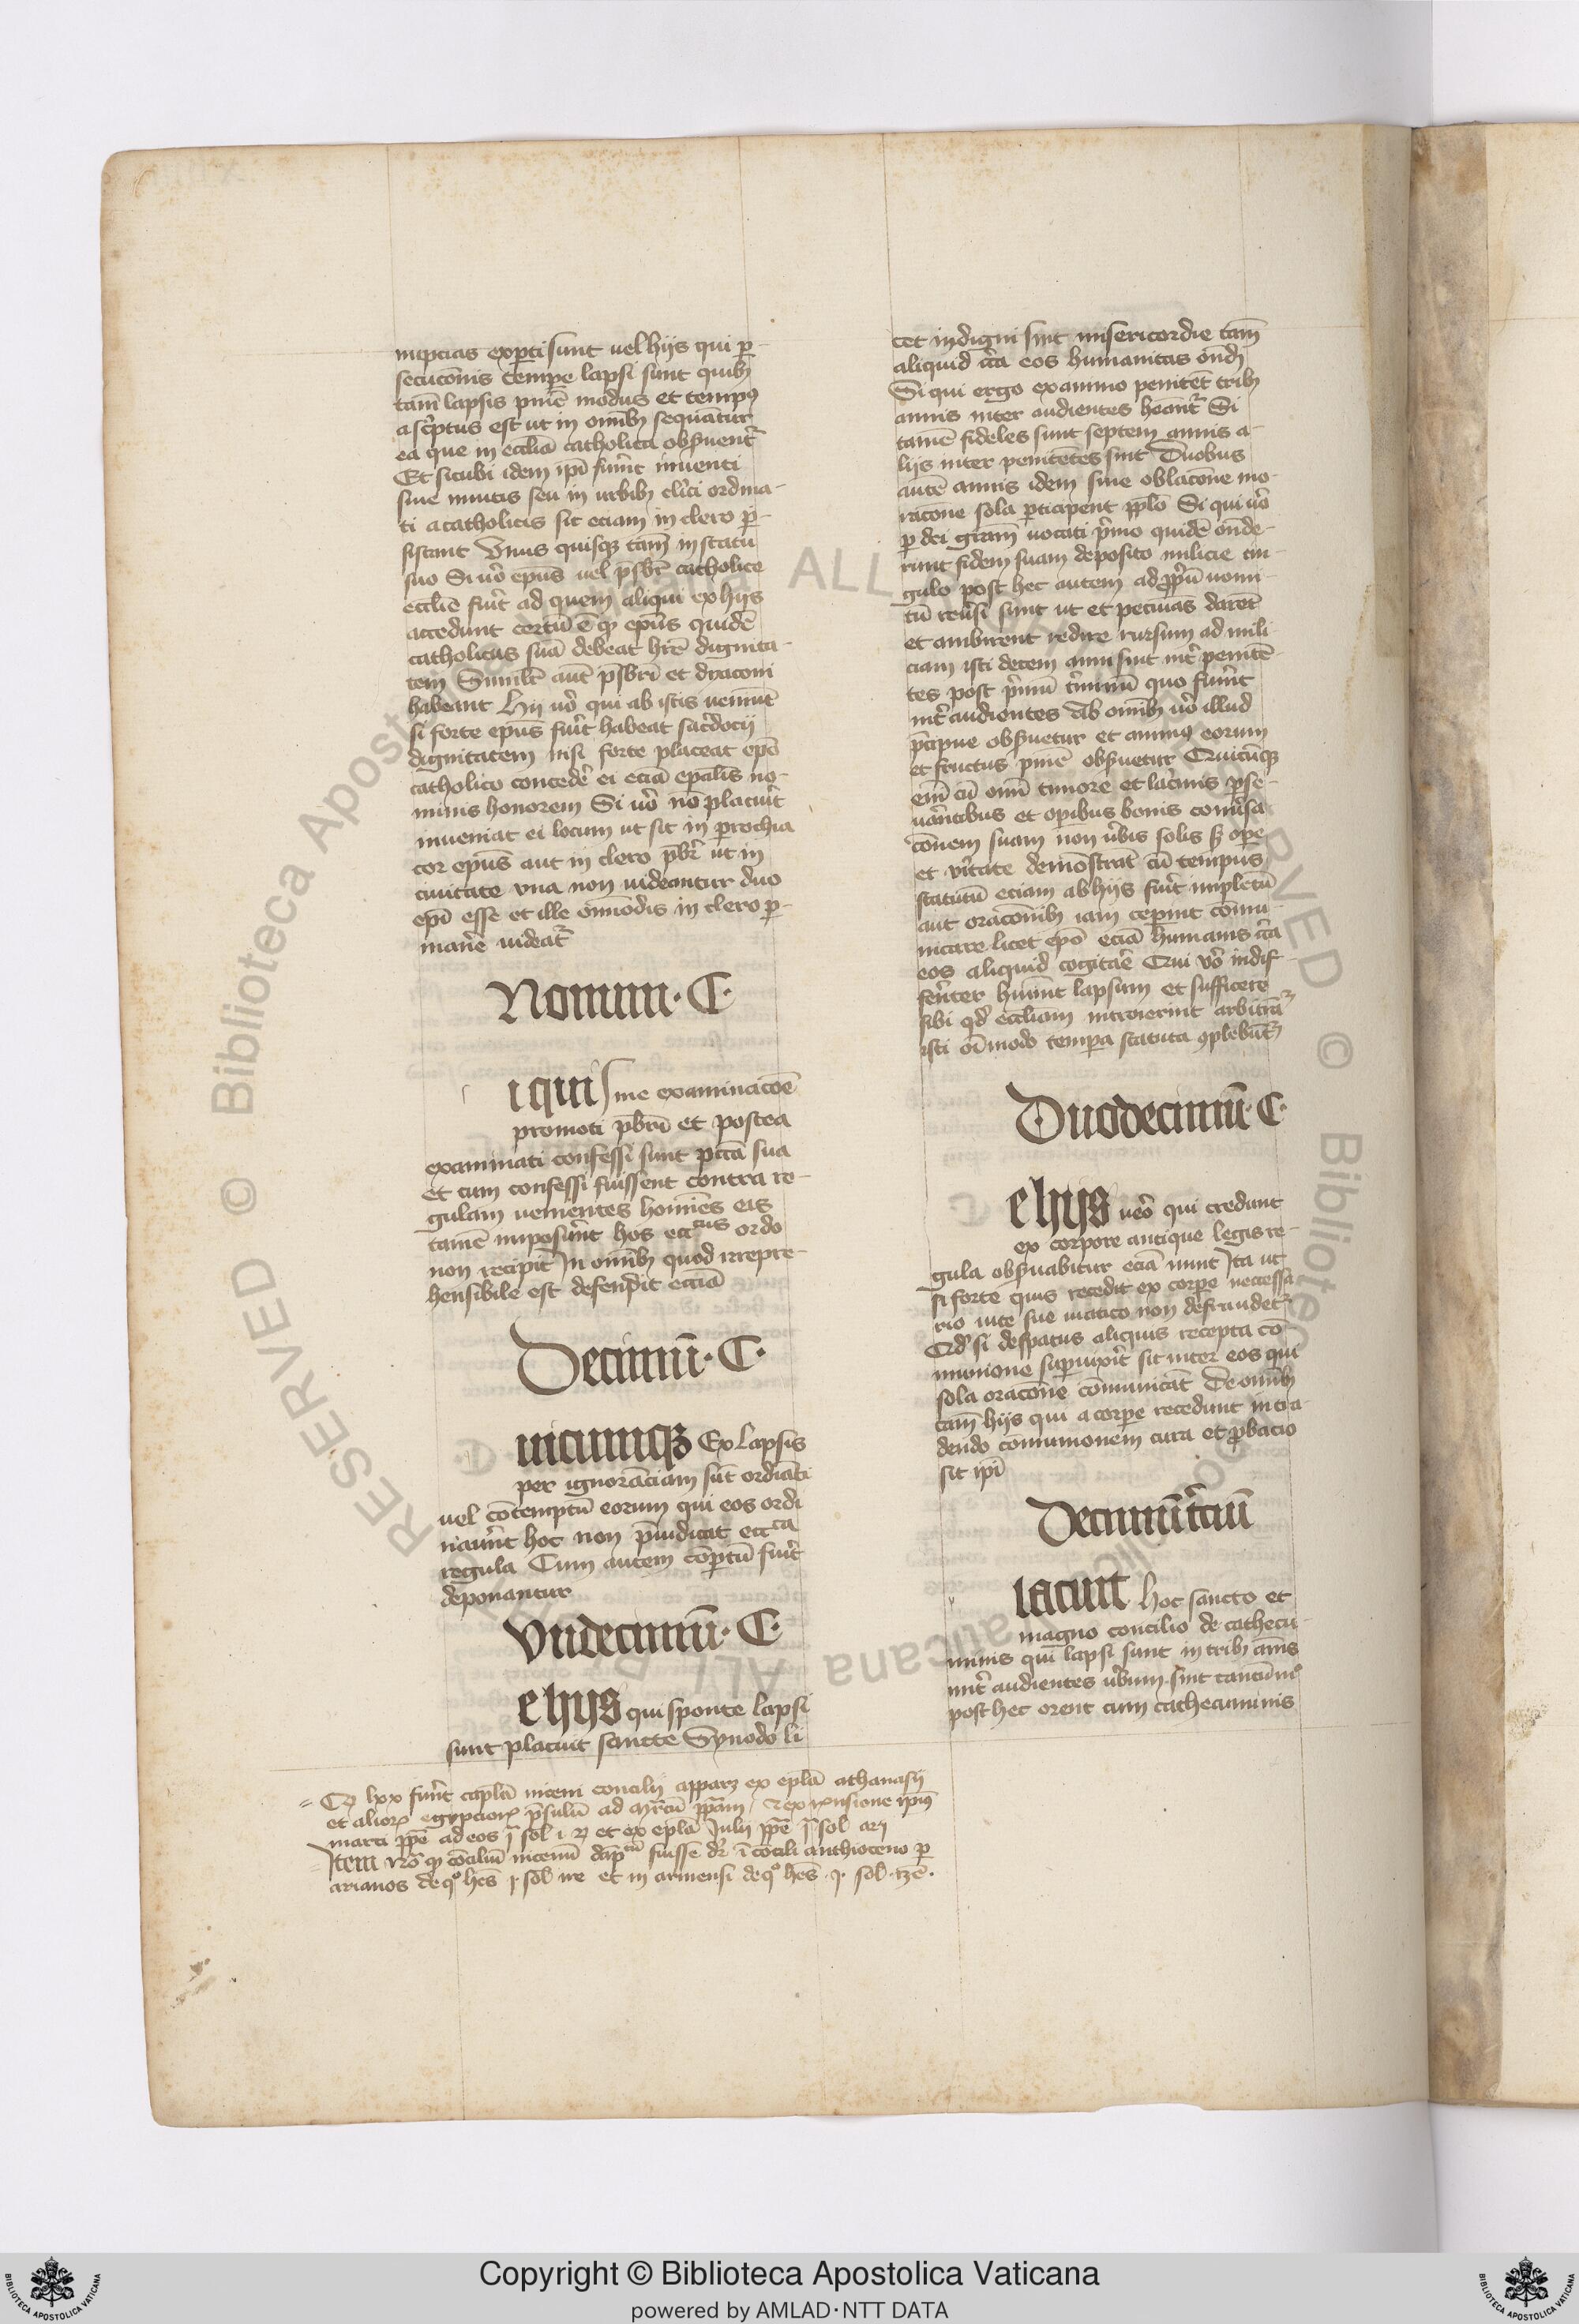 nupcias exp̱ti sunt uel hijs qui ꝑ-
secuc̄onis temꝑe lapsi sunt quibꝫ
tam̄ lapsis pnīe modus et tempꝰ
asc̓ptus est ut in om̄ibꝫ sequātur
ea que in eccl̄ia catholica obs̓uent᷑
Et sicubi idem ip̄i fuer̄t inuenti
siue uiucis seu in urbibꝫ cl̓ici ordina-
ti a catholicis sic eciam in clero ꝑ-
sistant Vnus quisqꝫ tam̄ in statu
suo Si uo᷑ ep̄us uel p̄sbr̄ catholice
eccl̄ie fuer̄t ad quem aliqui ex hijs
accedunt certū ē qꝫ ep̄us quidē
catholicus suā debeat hr̄e dignita-
tem Similr̄ aut̄ p̄sbr̄i et dyaconi
habeant Hij uo᷑ qui ab istis ueniūt
si forte ep̄us fuer̄t habeat sac̓docij
dignitatem nisi forte placeat ep̄o
catholico concedē ei eciā ep̄alis no-
minis honorem Si uo᷑ nō placuer̄t
inueniat ei locum ut sit in ꝑrochia
cor ep̄us aut in clero p̄br̄ ut in
ciuitate vna non uideantur duo
ep̄i esse et ille om̄imodis in clero ꝑ-
manē uideat᷑
Nonum · C ·
i qui sine examinacōē
promoti p̄br̄i et postea
examinati confessi sunt pctā sua
et cum confessi fuissent contra re-
gulam uenientes homīes eis
tamē imposuer̄t hos eccᶜᵘˢ ordo
non recipit In om̄ibꝫ quod irrepre-
hensibile est defendit eccīa
Decimū · C ·
uicumqꝫ Ex lapsis
per ignorāciam sūt ordiāti
uel cōtemptū eorum qui eos ordi
nauer̄t hoc non p̄iudicat eccᶜᵃ
regula Cum autem cōp̱tū fuer̄t
deponantur
Vndecimū · C ·
e hijs qui sponte lapsi
sunt placuit sancte Synodo li
cet indigni sint misericordie tam̄
aliquid cc̄a eos humanitas ōndi
Si qui ergo ex animo penitēt tribꝫ
annis inter audientes heānt᷑ Si
tamē fideles sunt septem annis a-
lijs inter penitētes sint Duobus
autē annis idem sine oblacōne in o-
racōne sola ꝑticipent pplō Si qui uo᷑
ꝑ dei graām uocati p̓mo quidē ōnde-
runt fidem suam deposito milicie cin-
gulo post hec autem ad ꝓpū uomi-
tū reu̓si sunt ut et pecuīas darēt
et ambirent redire rursum ad mili
ciam isti decem annis sint int̓ penitē-
tes post p̓mū t̓nnīū quo fuer̄t
int̓ audientes Ab om̄ibꝫ uo᷑ illud
p̄cipue obs̓uetur et animꝰ eorum
et fructus pnīe obs̓uetur Quicūqꝫ
eni cū om̄i timore et lac̓mis ꝑse-
uāntibus et oꝑibus bonis conu̓sa
cōnem suam non u̓bis solis sꝫ oꝑe
et v̓itate demōstrāt cū tempus
statutū eciam ab hijs fuer̄t impletū
aut oracōnibꝫ iam ceꝑint cōmu-
nicare licet ep̄o eciā humanis cc̄a
eos aliquid cogitāe Qui vo᷑ indif-
fer̄ter huer̄nt lapsum et sufficere
sibi qd̓ eccliam introierint arbitrā᷑
isti oīmodo temꝑa statuta ꝯplebūt᷑
Duodecimū · C ·
e hijs uo᷑ qui credunt
ex corpore antique legis re-
gula obs̓uabitur eciā nunc Ita ut
si forte quis recedit ex corꝑe necessa
rio uite sue uiatico non defraudet᷑
Qd̓ si desꝑatus aliquis recepta cō
munione suꝑuixer̄t sit inter eos qui
sola oracōne cōmunicāt De om̄ibꝫ
tam̄ hijs qui a corꝑe recedunt in tra-
dendo communionem cura et ꝓbacio
sit ip̄i
Decimūtciū
lacuit hoc sancto et
magno concilio de cathecu-
minis qui lapsi sunt in tribꝫ annis
int̓ audientes u̓bum sint tantūmᵒ
post hec orent cum cathecuminis
Qꝫ lxx fuer̄t capla niceni concilij apparꝫ ex epla athanasij
et alioꝝ egypcioꝝ p̄sulū ad Mr̄cū ppam,
marci ppe ad eos
Item
arianos